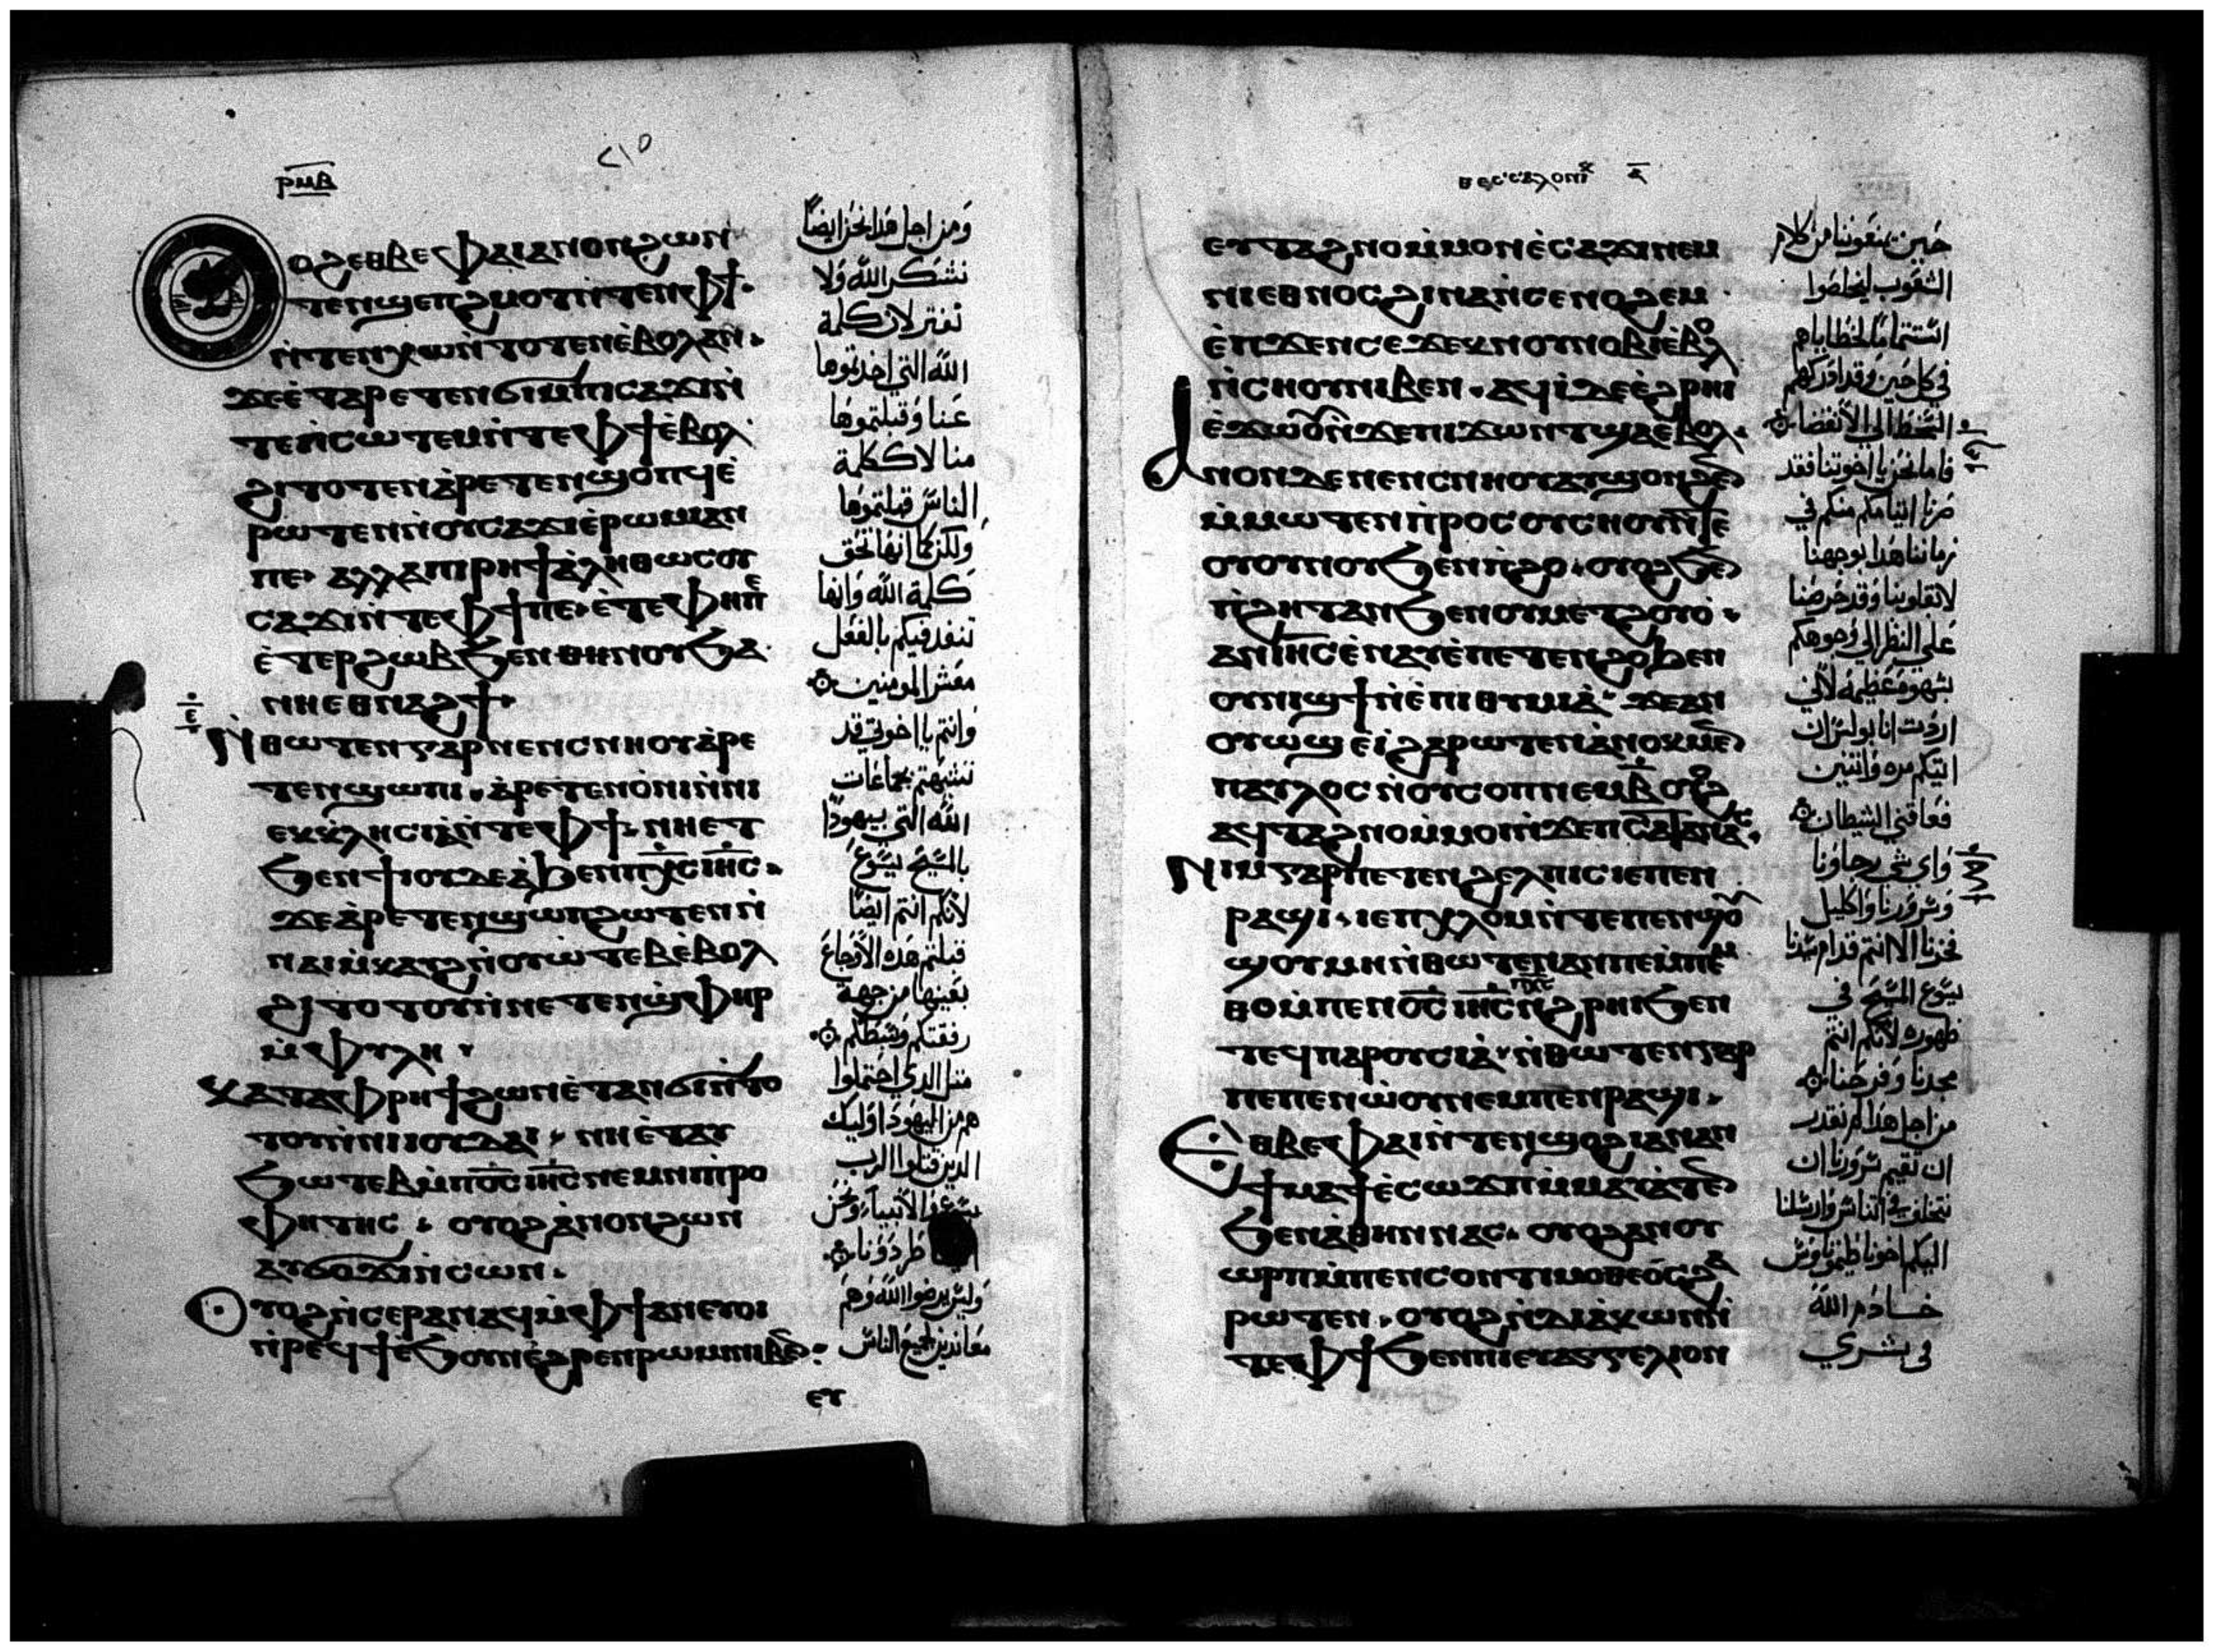 ⲣⲙⲃ
٢١٥
ⲟϩ ⲉⲑⲃⲉ ⲫⲁⲓ ⲁⲛⲟⲛ ϩⲱⲛ
ⲧⲉⲛϣⲉⲡϩⲙⲟⲧ ⲛ̇ⲧⲉⲛ ⲫϯ·
ⲛ̇ⲧⲉⲛⲭⲱ ⲛ̇ⲧⲟⲧⲉⲛ ⲉ̇ⲃⲟⲗ ⲁⲛ·
ϫⲉ ⲉ̇ⲧⲁⲣⲉⲧⲉⲛϭⲓ ⲙ̇ⲡⲥⲁϫⲓ ⲛ̇
ⲧⲉⲡⲥⲱⲧⲉⲙ ⲛ̇ⲧⲉ ⲫϯ ⲉ̇ⲃⲟⲗ
ϩⲓⲧⲟⲧⲉⲛ ⲁ̇ⲣⲉⲧⲉⲛϣⲟⲡϥ ⲉ̇
ⲣⲱⲧⲉⲛ ⲛ̇ⲟⲩⲥⲁϫⲓ ⲉ̇ⲣⲱⲙⲓ ⲁⲛ
ⲡⲉ· ⲁⲗⲗⲁ ⲙ̇ⲫⲣⲏϯ ⲁ̇ⲗⲏⲑⲱⲥ ⲟⲩ
ⲥⲁϫⲓ ⲛ̇ⲧⲉ ⲫϯ ⲡⲉ· ⲉ̇ⲧⲉ ⲫⲏ ⲡⲉ
ⲉ̇ⲧⲉⲣϩⲱⲃ ϧⲉⲛ ⲑⲏⲛⲟⲩ ϧⲁ
ⲛⲏⲉⲑⲛⲁϩϯ·
ⲉ̄
ⲛ̇ⲑⲱⲧⲉⲛ ⲅⲁⲣ ⲛⲉⲛⲥⲛⲏⲟⲩ ⲁ̇ⲣⲉ
ⲧⲉⲛϣⲱⲡⲓ· ⲁ̇ⲣⲉⲧⲉⲛⲟ̇ⲛⲓ ⲛ̇ⲛⲓ
ⲉⲕⲕⲗⲏⲥⲓⲁ̇ ⲛ̇ⲧⲉ ⲫϯ· ⲛⲏⲉⲧ
ϧⲉⲛ ϯⲓⲟⲩⲇⲉⲁ̇ ϧⲉⲛ ⲡⲭ̅ⲥ̅ ⲓⲏ̅ⲥ̅·
ϫⲉ ⲁ̇ⲣⲉⲧⲉⲛϣⲱⲡ ϩⲱⲧⲉⲛ ⲛ̇
ⲛⲁⲓⲙ̇ⲕⲁⲩϩ ⲛ̇ⲟⲩⲱ̇ⲧ ⲉⲃⲉ̇ⲃⲟⲗ
ϩⲓⲧⲟⲧⲟⲩ ⲛ̇ⲛⲉⲧⲉⲛϣ̇ⲫⲏⲣ
ⲙ̇ⲫⲩⲗⲏ·
ⲕⲁⲧⲁ ⲫⲣⲏϯ ϩⲱⲛ ⲉ̇ⲧⲁⲛϭⲓ ⲛ̇ⲧⲟ
ⲧⲟⲩ ⲛ̇ⲛⲓⲓⲟⲩⲇⲁⲓ· ⲛⲏⲉ̇ⲧⲁⲩ
ϧⲱⲧⲉⲃ ⲙ̇ⲡⲟ̅ⲥ̅ ⲓⲏ̅ⲥ̅ ⲛⲉⲙ ⲛⲓⲡⲣⲟ
ⲫⲏⲧⲏⲥ· ⲟⲩⲟϩ ⲁ̇ⲛⲟⲛ ϩⲱⲛ
ⲁⲩϭⲟϫⲓ ⲛ̇ⲥⲱⲛ·
ⲟⲩⲟϩ ⲛ̇ⲥⲉⲣⲁⲛⲁϥ ⲙ̇ⲫϯ ⲁⲛ ⲉⲩⲟⲓ
ⲛ̇ⲣⲉϥϯ ⲉ̇ϧⲟⲩⲛ ⲉ̇ϩⲣⲉⲛ ⲣⲱⲙⲓ ⲛⲓⲃⲉⲛ·
ⲉⲩ
ومن اجل هدا نحن ايضاً
نشكر الله ولا
نفتر لان كلمة
الله التي اخدتموها
عنا وقبلتموها
منا لا ككلمة
الناس قبلتموها
ولكن كما انها تحق
كلمة الله وانها
تنفد فيكم بالفعل
معشر المومنين
وانتم يا اخوتي قد
تشبهتم بجماعات
الله التي بيهودا
بالمسيح يسوع
لانكم انتم ايضاً
قبلتم هده الاوجاع
بعينها من جهة
رفقتكم وسبطكم
مثل الدي احتملوا
هم من اليهود اوليك
الدين قتلوا الرب
يسوع والانبياء ونحن
طردونا
وليس يرضوا الله وهم
معاندين لجميع الناس
ⲑⲉⲥⲥⲁⲗⲟⲛⲓⲕ ⲁ̅
ⲉⲩⲧⲁϩⲛⲟ ⲙ̇ⲙⲟⲛ ⲉ̇ⲥⲁϫⲓ ⲛⲉⲙ
ⲛⲓⲉⲑⲛⲟⲥ ϩⲓⲛⲁ ⲛ̇ⲥⲉⲛⲟϩⲉⲙ·
ⲉ̇ⲡϫⲉⲛⲥⲉϫⲉⲕ ⲛⲟⲩⲛⲟⲃⲓ ⲉ̇ⲃⲟⲗ
ⲛ̇ⲥⲏⲟⲩ ⲛⲓⲃⲉⲛ· ⲁϥⲓ̇ ⲇⲉ ⲉ̇ϩⲣⲏⲓ
ⲉ̇ϫⲱⲟⲩ ⲛ̇ϫⲉ ⲡⲓϫⲱⲛⲧ ϣⲁⲉ̇ⲃⲟⲗ·
ⲁⲛⲟⲛ ⲇⲉ ⲛⲉⲛⲥⲛⲏⲟⲩ ⲁⲩϣⲟⲛϩⲉⲛ
ⲙ̇ⲙⲱⲧⲉⲛ ⲡ̇ⲣⲟⲥ ⲟⲩⲥⲏⲟⲩ ⲛ̇ⲧⲉ
ⲟⲩⲟⲩⲛⲟⲩ ϧⲉⲛ ⲡ̇ϩⲟ· ⲟⲩⲟϩ ϧⲉⲛ
ⲡ̇ϩⲏⲧ ⲁⲛ ϧⲉⲛ ⲟⲩⲙⲉⲧϩⲟⲩⲟ̇·
ⲁⲛⲓⲏⲥ ⲉ̇ⲛⲁⲩ ⲉ̇ⲡⲉⲧⲉⲛϩⲟ ϧⲉⲛ
ⲟⲩⲛⲓϣϯ ⲛ̇ⲉ̇ⲡⲓⲑⲩⲙⲓⲁ̇· ϫⲉ ⲁⲛ
ⲟⲩⲱϣ ⲉ̇ⲓ̇ ϩⲁⲣⲱⲧⲉⲛ ⲁ̇ⲛⲟⲕ ⲙⲉⲛ
ⲡⲁⲩⲗⲟⲥ ⲛ̇ⲟⲩⲥⲟⲡ ⲛⲉⲙ ⲃ̅ ⲟⲩⲟϩ
ⲁϥⲧⲁϩⲛⲟ ⲙ̇ⲙⲟⲛ ⲛ̇ϫⲉ ⲡⲥⲁⲧⲁⲛⲁⲥ·
ⲛⲓⲙ ⲅⲁⲣ ⲡⲉ ⲧⲉⲛϩⲉⲗⲡⲓⲥ ⲓⲉ ⲡⲉⲛ
ⲣⲁϣⲓ· ⲓⲉ ⲡⲭ̇ⲗⲟⲙ ⲛ̇ⲧⲉ ⲡⲉⲛϣⲟⲩ
ϣⲟⲩ ⲙⲏ ⲛ̇ⲑⲱⲧⲉⲛ ⲁⲛ ⲡⲉ ⲙ̇ⲡⲉⲙ
ⲑⲟ ⲙ̇ⲡⲉⲛⲟ̅ⲥ̅ ⲓⲏ̅ⲥ̅ ⲡⲭ̅ⲥ̅ ⲛ̇ϩⲣⲏⲓ ϧⲉⲛ
ⲧⲉϥⲡⲁⲣⲟⲩⲥⲓⲁ̇· ⲛ̇ⲑⲱⲧⲉⲛ ⲅⲁⲣ
ⲡⲉ ⲡⲉⲛⲱ̇ⲟⲩ ⲛⲉⲙ ⲡⲉⲛⲣⲁϣⲓ·
ⲉⲑⲃⲉ ⲫⲁⲓ ⲛ̇ⲧⲉⲛϣⲟϩⲓ ⲁⲛ ⲁⲛ
ϯⲙⲁϯ ⲉ̇ⲥⲱϫⲡ ⲙ̇ⲙⲁⲩⲁ̇ⲧⲉⲛ
ϧⲉⲛ ⲁ̇ⲑⲏⲛⲛⲁⲥ· ⲟⲩⲟϩ ⲁⲛⲟⲩ
ⲱⲣⲡ ⲙ̇ⲡⲉⲛⲥⲟⲛ ⲧⲓⲙⲟⲑⲉⲟ̇ⲥ ϩⲁ
ⲣⲱⲧⲉⲛ· ⲟⲩⲟϩ ⲛ̇ⲇⲓⲁ̇ⲕⲱⲛ ⲛ̇
ⲧⲉ ⲫϯ ϧⲉⲛ ⲡⲓⲉⲩⲁⲅⲅⲉⲗⲓⲟⲛ
حين يمنعوننا من كلام
الشعوب ليخلصوا
استتماماً لخطاياهم
في كل حين وقد ادركهم
السخط الى الانقضا
فاما نحن يا اخوتنا فقد
صرنا ايتامكم منكم في
زماننا هدا بوجهنا
لا بقلوبنا وقد حرصنا
على النظر الى وجوهكم
بشهوة عظيمة لاني
اردت انا بولس ان
اتيكم مره واثنين
فعاقني الشيطان
واي شي رجاونا
وسرورنا واكليل
فخرنا الا انتم قدام سيدنا
يسوع المسيح في
ظهوره لانكم انتم
مجدنا وفرحنا
من اجل هدا لم نقدر
ان نقيم سرورنا ان
نتخلف في اتناس وارسلنا
اليكم اخونا طيموتاوس
خادم الله
في بشري